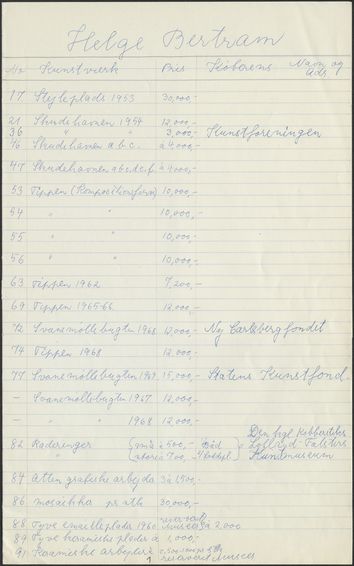 Helge Bertram
Nr Kunstværk Pris Køberens Navn og Ads.
17 Stejleplads 1953 30,000,-
21 Skudehavnen 1954 12,000,-
36 " " 3,000,- Kunstforeningen
46 Skudehavnen a.b.c. à 4,000,-
47 Skudehavnen a.b.c.d.e.f. à 4000,-
53 Tippen (Kompositionsform) 10,000,-
54 " " 10,000,-
55 " " 10,000,-
56 " " 10,000,-
63 Tippen 1962 7,200,-
69 Tippen 1965-66 12,000,-
72 Svanemøllebugten 1968 12,000,- Ny Carlsbergfondet
74 Tippen 1968 12,000,-
77 Svanemøllebugten 1969 15,000,- Statens Kunstfond.
- Svanemøllebugten 1967 12,000,-
- " 1968 12,000,-
Den kgl.
82 Raderinger à 500,- Lolland-Falsters
à 700, Kunstmuseum
84 Atten grafiske arbejder à 1500,-
86 mosaikker pr stk 30,000,-
88 Tyve emailleplader 1960 2,000
89 Tyve keramiske plader à 1,000,-
91 Keramiske arbejder à
reserveret